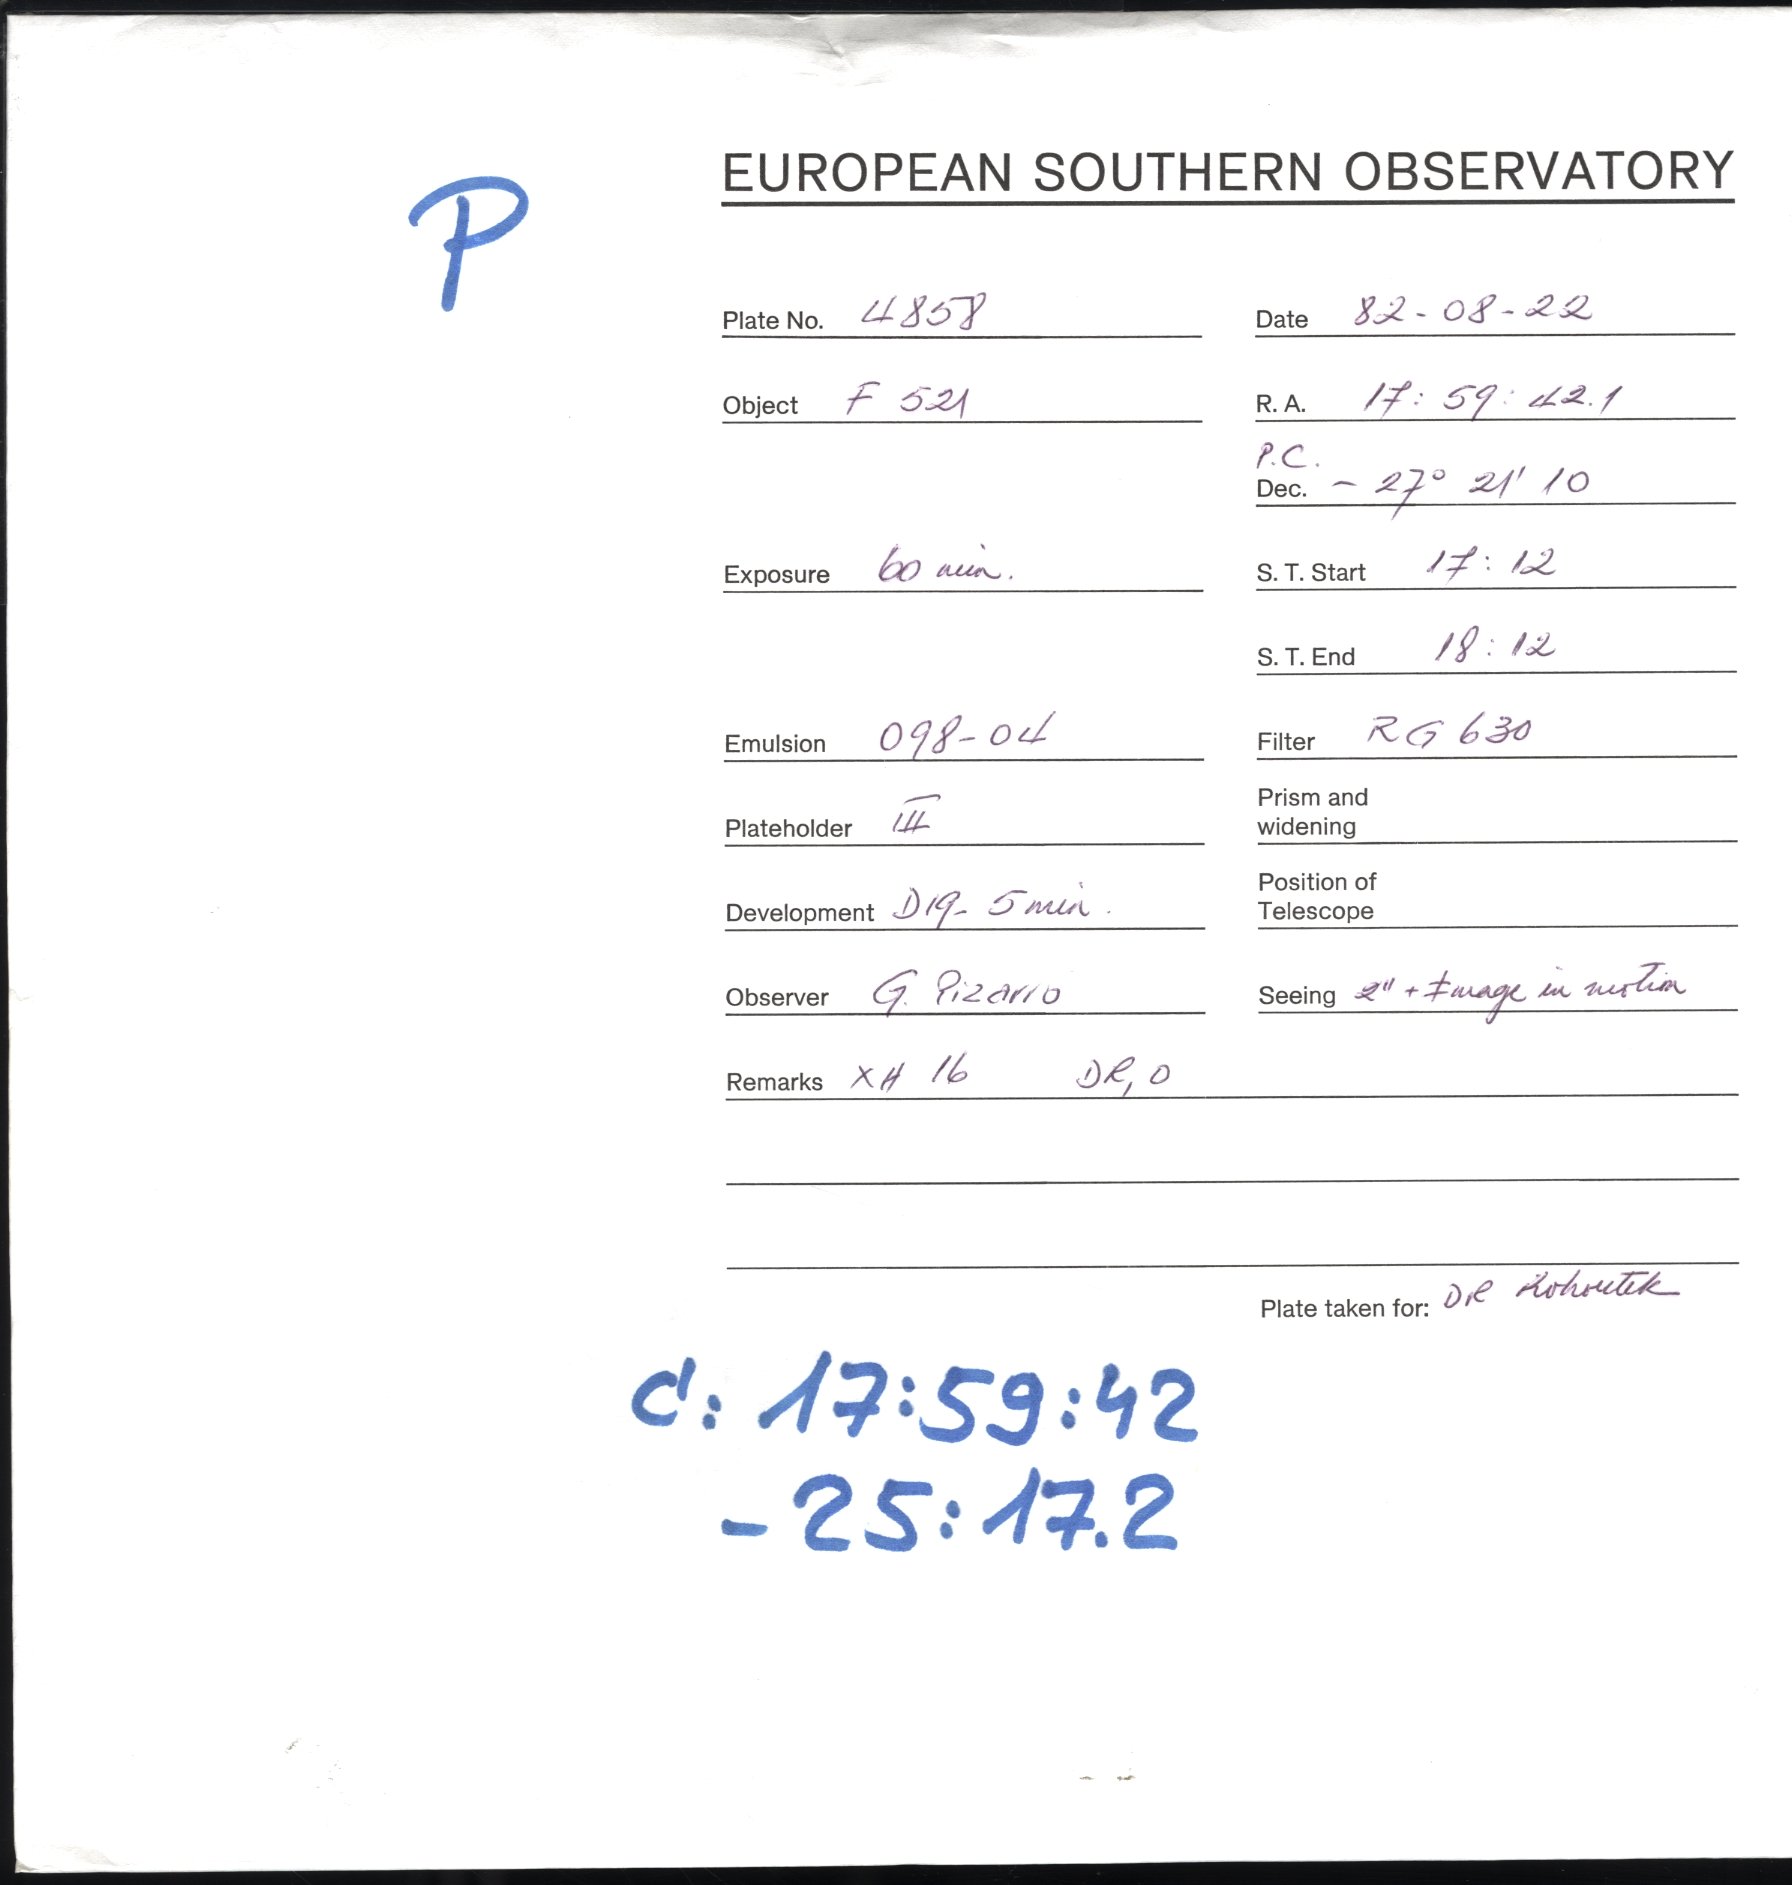 EUROPEAN SOUTHERN OBSERVATORY
P
Plate No. 4858 Date 82-08-22
Object F 521 R. A. 17: 59: 42.1
P.C.
Dec. - 27° 21' 10
Exposure 60 min. S. T. Start 17: 12
S. T. End 18: 12
Emulsion 098-04 Filter RG 630
Plateholder III Prism and widening
Development D19- 5 min. Position of Telescope
Observer G. Pizarro Seeing 2" + Image in motion
Remarks XH 16 DR, O
Plate taken for: DR Kohoutek
C: 17:59:42
-25:17.2